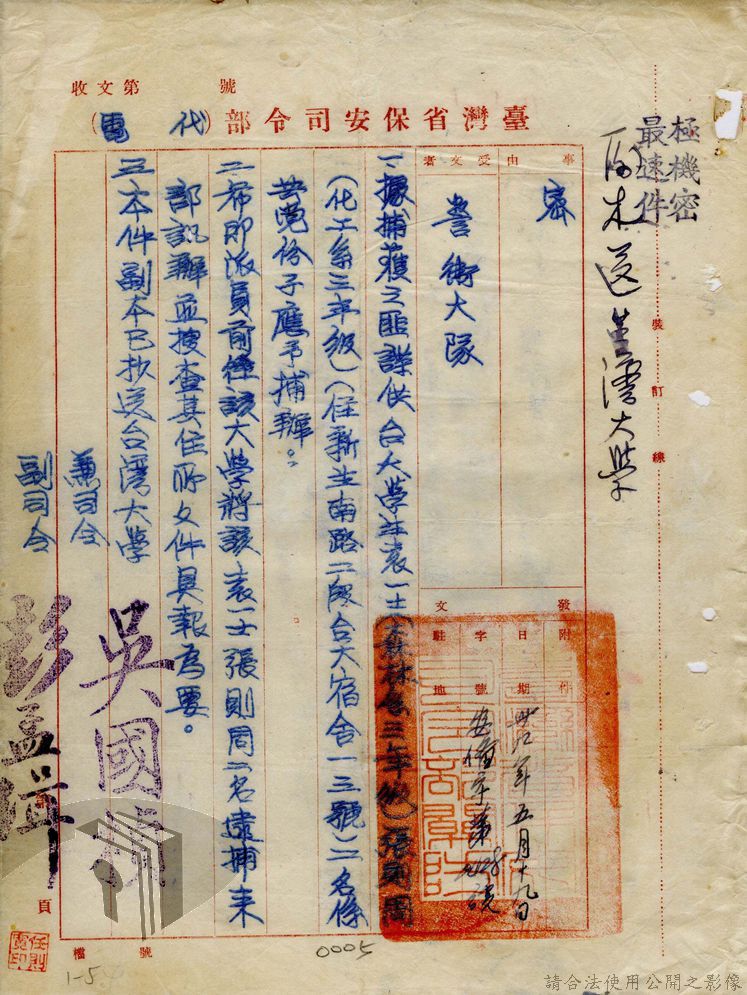 極機密
最速件
副本送台灣大學
收文第　　　號
臺灣省保安司令部（代電）
事由
密
受文者
警衛大隊
附件
發文
日期
卅九年五月十九日
字號
駐地
一、據捕獲之匪諜供台大學生袁一士（森林系三年級）張則周
（化工系三年級）（住新生南路二段台大宿舍一三號）二名係
共黨份子應予捕辦。
二、希即派員前往該大學將該袁一士張則周二名逮捕來
部訊辦並搜查其住所文件具報為要。
三、本件副本已抄送台灣大學
兼司令
吳國楨
副司令
彭孟緝
裝
訂
線
頁
檔號
0005
1-5
請合法使用公開之影像